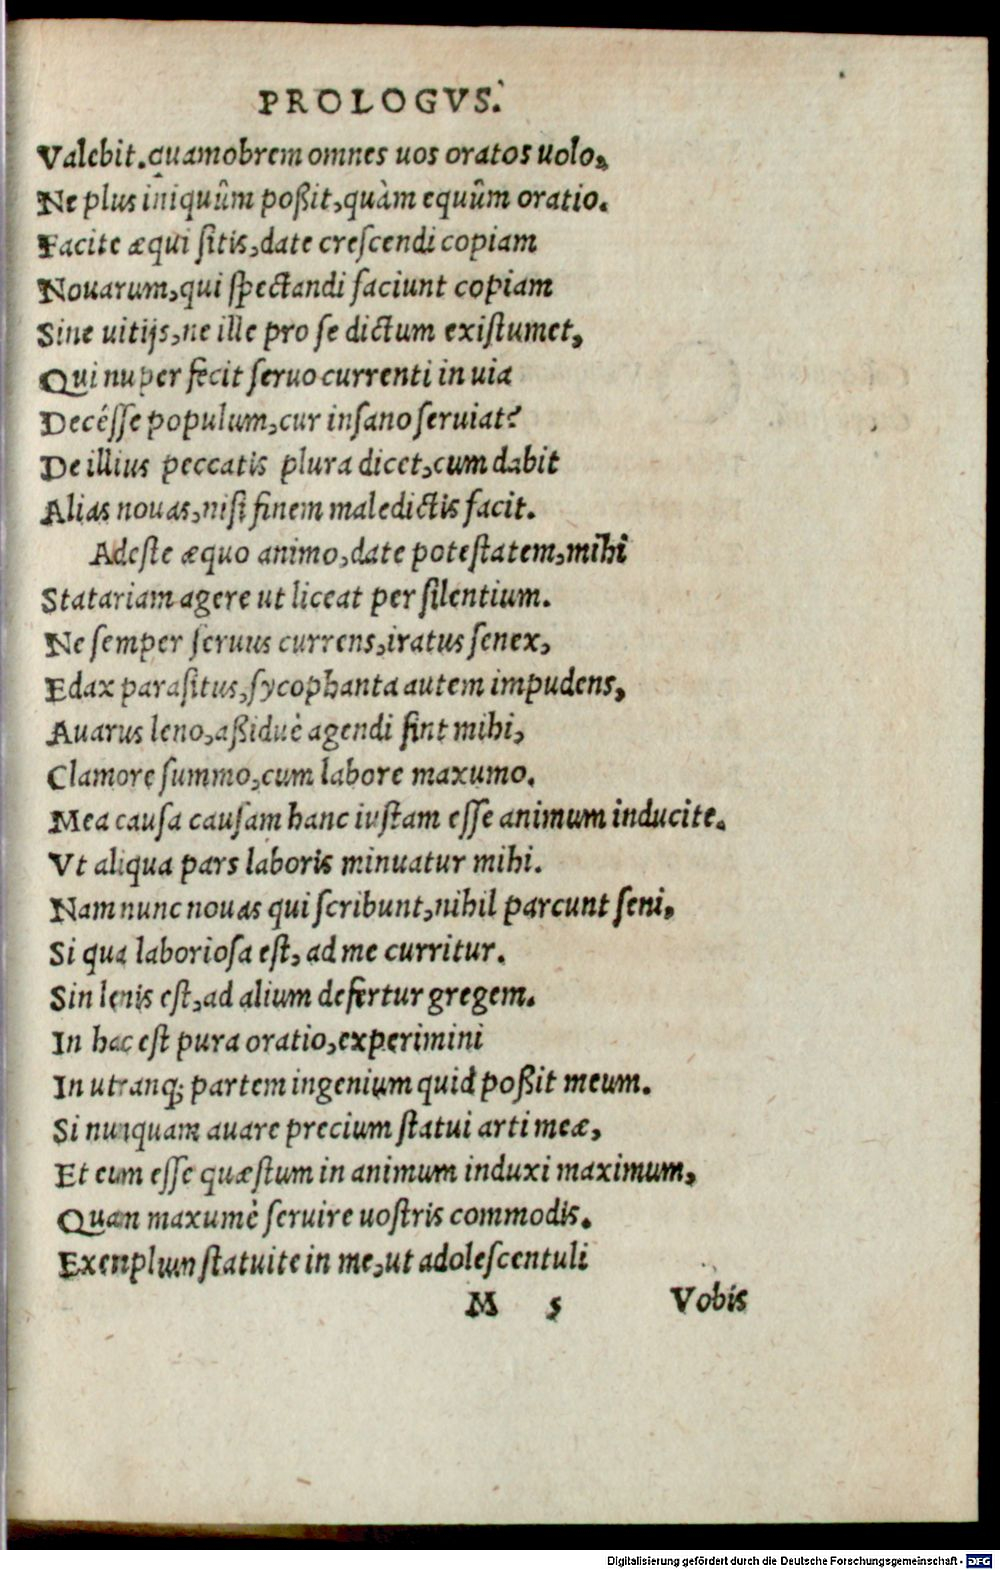 PROLOGVS.
Valebit. quamobrem omnes uos oratos uolo,
Ne plus iniquûm poßit, quàm equûm oratio.
Facite æqui sitis, date crescendi copiam
Nouarum, qui spectandi faciunt copiam
Sine uitijs, ne ille pro se dictum existumet,
Qui nuper fecit seruo currenti in uia
Decésse populum, cur insano seruiat?
De illius peccatis plura dicet, cum dabit
Alias nouas, nisi finem maledictis facit.
Adeste æquo animo, date potestatem, mihi
Statariam agere ut liceat per silentium.
Ne semper seruus currens, iratus senex,
Edax parasitus, sycophanta autem impudens,
Auarus leno, aßiduè agendi sint mihi,
Clamore summo, cum labore maxumo.
Mea causa causam hanc iustam esse animum inducite.
Vt aliqua pars laboris minuatur mihi.
Nam nunc nouas qui scribunt, nihil parcunt seni,
Si qua laboriosa est, ad me curritur.
Sin lenis est, ad alium defertur gregem.
In hac est pura oratio, experimini
In utranq; partem ingenium quid poßit meum.
Si nunquam auare precium statui arti meæ,
Et eum esse quæstum in animum induxi maximum,
Quam maxumè seruire uostris commodis.
Exemplum statuite in me, ut adolescentuli
M 5 Vobis
Digitalisierung gefördert durch die Deutsche Forschungsgemeinschaft - DFG